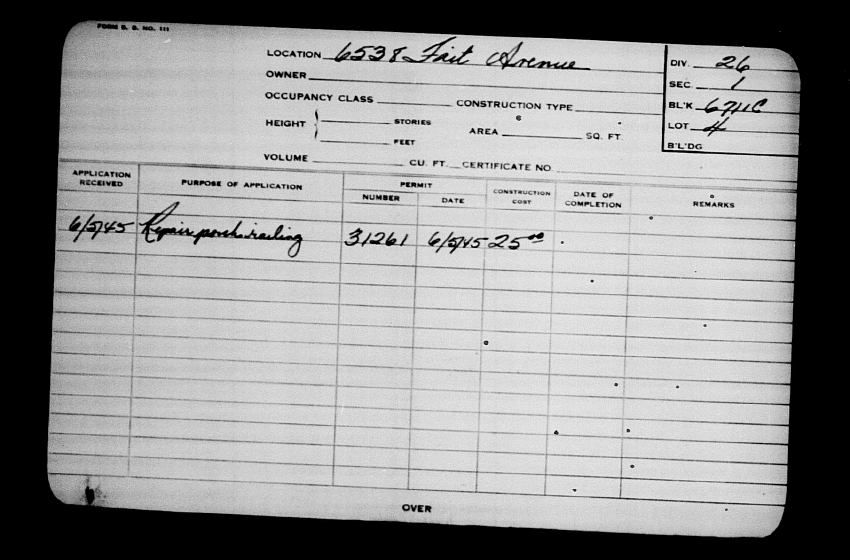 FORM B. B. NO. 111
LOCATION 6538 Fait Avenue
OWNER
OCCUPANCY CLASS CONSTRUCTION TYPE
HEIGHT STORIES
FEET
AREA SQ. FT.
VOLUME CU. FT. CERTIFICATE NO.
DIV. 26
SEC. 1
BL'K 6711C
LOT 4
B'L'DG
APPLICATION RECEIVED PURPOSE OF APPLICATION PERMIT NUMBER DATE CONSTRUCTION COST DATE OF COMPLETION REMARKS
6/5/45 Repair porch railing 31261 6/5/45 25 00
OVER